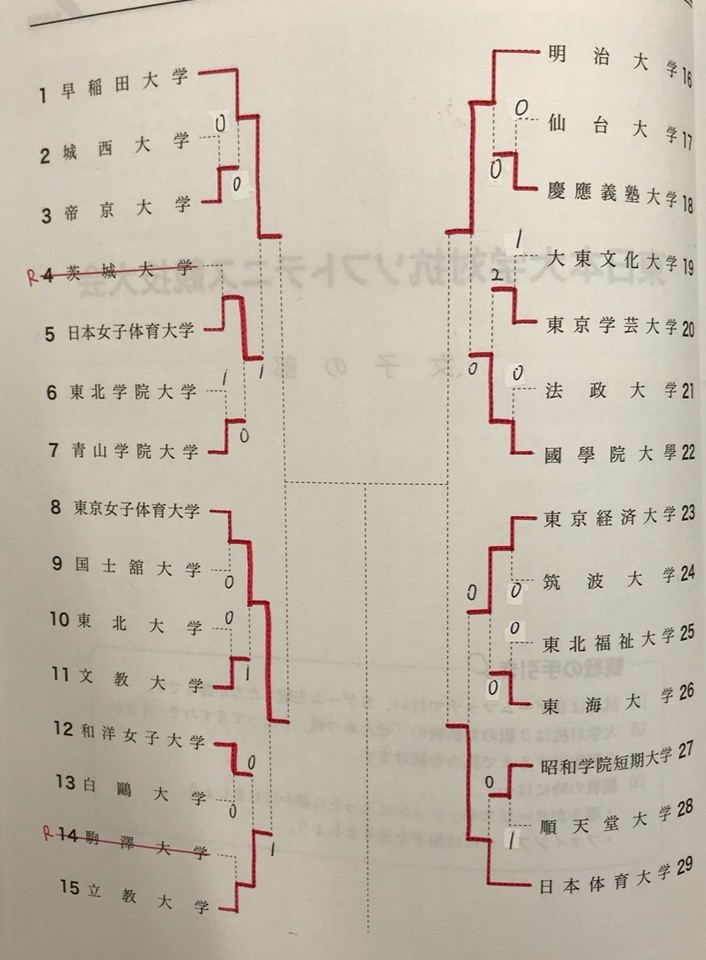 1 早稲田大学
0
2 城西大学
0
3 帝京大学
R 4 茨城大学
5 日本女子体育大学
1
6 東北学院大学
1
0
7 青山学院大学
8 東京女子体育大学
9 国士舘大学
0
10 東北大学
0
1
11 文教大学
12 和洋女子大学
0
13 白鷗大学
0
R 14 駒澤大学
1
15 立教大学
明治大学 16
0
仙台大学 17
0
慶應義塾大学 18
1
大東文化大学 19
2
東京学芸大学 20
0
0
法政大学 21
國學院大學 22
東京経済大学 23
0
筑波大学 24
0
0
東北福祉大学 25
0
東海大学 26
昭和学院短期大学 27
0
順天堂大学 28
1
日本体育大学 29
東日本大学対抗ソフトテニス競技大会
女子の部
観戦の手引き